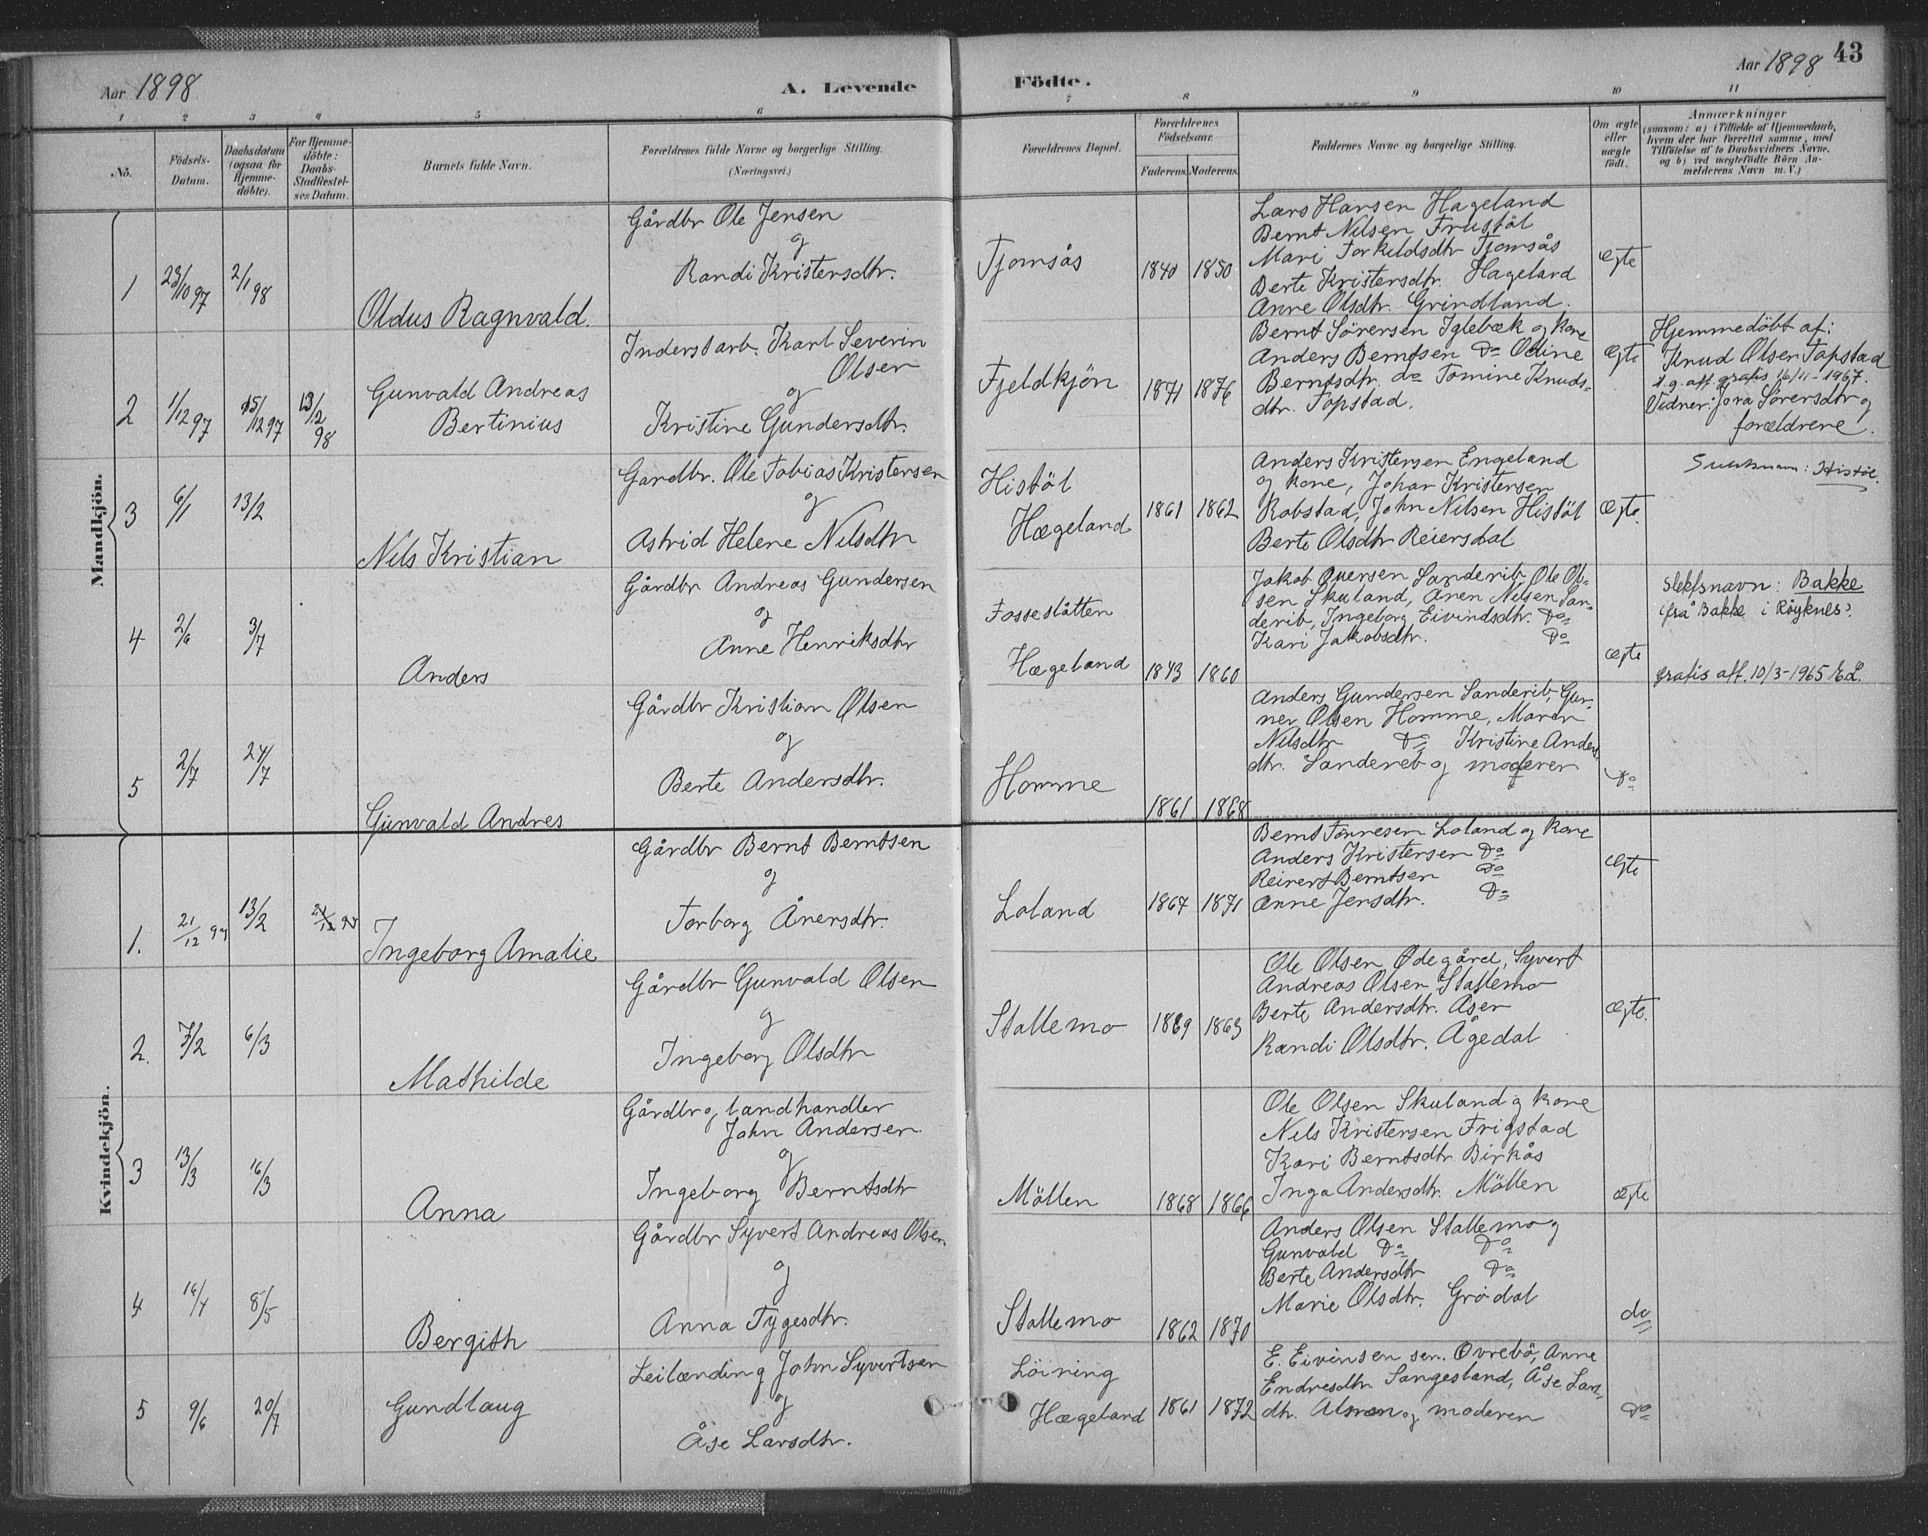 Aar 1898
A. Levende Födte.
Aar 1898 43
1 2 3 4 5 6 7 8 9 10 11
No.
Födsels-Datum.
Daabsdatum (ogsaa for Hjemme-döbte).
For Hjemme-döbte: Daabs-Stadfæstel-ses Datum.
Barnets fulde Navn.
Forældrenes fulde Navne og borgerlige Stilling.
(Næringsvei.)
Forældrenes Bopæl.
Forældrenes Födselsaar.
Faderens. Moderens.
Faddernes Navne og borgerlige Stilling.
Om ægte eller uægte födt.
Anmærkninger
(saasom: a) i Tilfælde af Hjemmedaab,
hvem der har forrettet samme, med
Tilföielse af to Daabsvidners Navne,
og b) ved uegtefödte Börn An-
melderens Navn m. V.)
Mandkjön.
1 23/10 97 2/1 98
Oldus Ragnvald.
Gårdbr Ole Jensen
og
Randi Kristensdtr.
Tjomsås
1840 1850
Lars Hansen Hageland
Bernt Nilsen Frustöl
Mari Torkildsdtr Tjomsås
Berte Kristensdtr. Hageland
Anne Olsdtr. Grindland.
Ægte
2 1/12 97 15/12 97 13/2 98
Gunvald Andreas
Bertinius
Inderstarb. Karl Severin
Olsen
og
Kristine Gundersdtr.
Fjeldkjön
1871 1876
Bernt Sörensen Iglebæk og kone
Anders Berntsen Do Odine
Berntsdtr. do Tomine Knuds-
dtr. Topstad.
Ægte
Hjemmedöbt af:
Knud Olsen Topstad
d.g. att. gratis 16/11-1967.
Vidner: Jora Sörensdtr og
forældrene.
3 6/1 13/2
Nils Kristian
Gardbr. Ole Tobias Kristensen
og
Astrid Helene Nilsdtr
Histöl
Hægeland
1861 1862
Anders Kristensen Engeland
og kone, Johan Kristensen
Robstad, John Nilsen Histöl
Berte Olsdtr Reiersdal
Ægte.
: Histöl.
4 2/6 3/7
Anders
Gårdbr Andreas Gundersen
og
Anne Henriksdtr
Fosseslåtten
Hægeland
1843 1860
Jakob Sanderib, Ole Ol-
sen Skuland, Anen Nilsen San-
derib, Ingeborg Eivindsdtr. Do
Kari Jakobsdtr. Do
Ægte
slektsnavn: Bakke
(frå Bakke i Röyknes).
gratis att. 10/3-1965 E.L.
5 2/7 24/7
Gunvald Andres
Gårdbr Kristian Olsen
og
Berte Andersdtr.
Homme
1861 1868
Anders Gundersen Sanderib, Gun-
ner Olsen Homme, Maren
Nilsdtr Do Kristine Anders
dtr. Sanderib og moderen
Do
Kvindekjön.
1. 21/12 97 13/2 21/12 97
Ingeborg Amalie
Gårdbr Bernt Berntsen
og
Torborg Ånersdtr.
Loland
1867 1871
Bernt Tönnesen Loland og kone
Anders Kristensen Do
Reinert Berntsen Do
Anne Jensdtr. Do
Ægte
2. 7/2 6/3
Mathilde
Gårdbr Gunvald Olsen
og
Ingeborg Olsdtr
Stallemo
1869 1863
Ole Olsen Ödegård, Syvert
Andreas Olsen Stallemo
Berte Andersdtr. Åsen
Randi Olsdtr. Ågedal
Ægte.
3 13/3 16/3
Anna
Gårdbr og landhandler
John Andersen
og
Ingeborg Berntsdtr
Möllen
1868 1866
Ole Olsen Skuland og kone
Nils Kristensen Frigstad
Kari Berntsdtr Birkås
Inga Andersdtr. Möllen
Ægte
4 16/4 8/5
Bergith
Gårdbr Syvert Andreas Olsen
og
Anna Tygesdtr.
Stallemo
1862 1870
Anders Olsen Stallemo og
Gunvald Do Do
Berte Andersdtr Do
Marie Olsdtr. Grödal
do
5 9/6 20/7
Gundlaug
Leilænding John Syvertsen
og
Åse Larsdtr.
Löining
Hægeland
1861 1872
E. Eivinsen sen. Övrebö, Anne
Endresdtr Sangesland, Åse Lars-
dtr. og moderen
Do